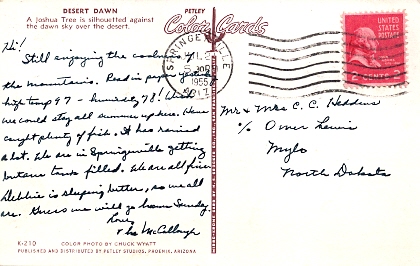 DESERT DAWN
A Joshua Tree is silhouetted against
the dawn sky over the desert.
PETLEY
Color Cards
Hi!
Still enjoying the coolness of
the mountains. Read in paper yesterday
high temp 97 - humidity 78! Wish
we could stay all summer up here. Have
caught plenty of fish. It has rained
a lot. We are in Springerville getting
butane tanks filled. We are all fine.
Debbie is sleeping better, so we all
are. Guess we will go home Sunday
Love,
The McCullough
K-210
COLOR PHOTO BY CHUCK WYATT
PUBLISHED AND DISTRIBUTED BY PETLEY STUDIOS, PHOENIX, ARIZONA
SPRINGERVILLE
1955
ARIZ.
UNITED
STATES
POSTAGE
2 CENTS 2
Mr & Mrs C. C. Heddins
c/o Omer Lewis
Mylo
North Dakota